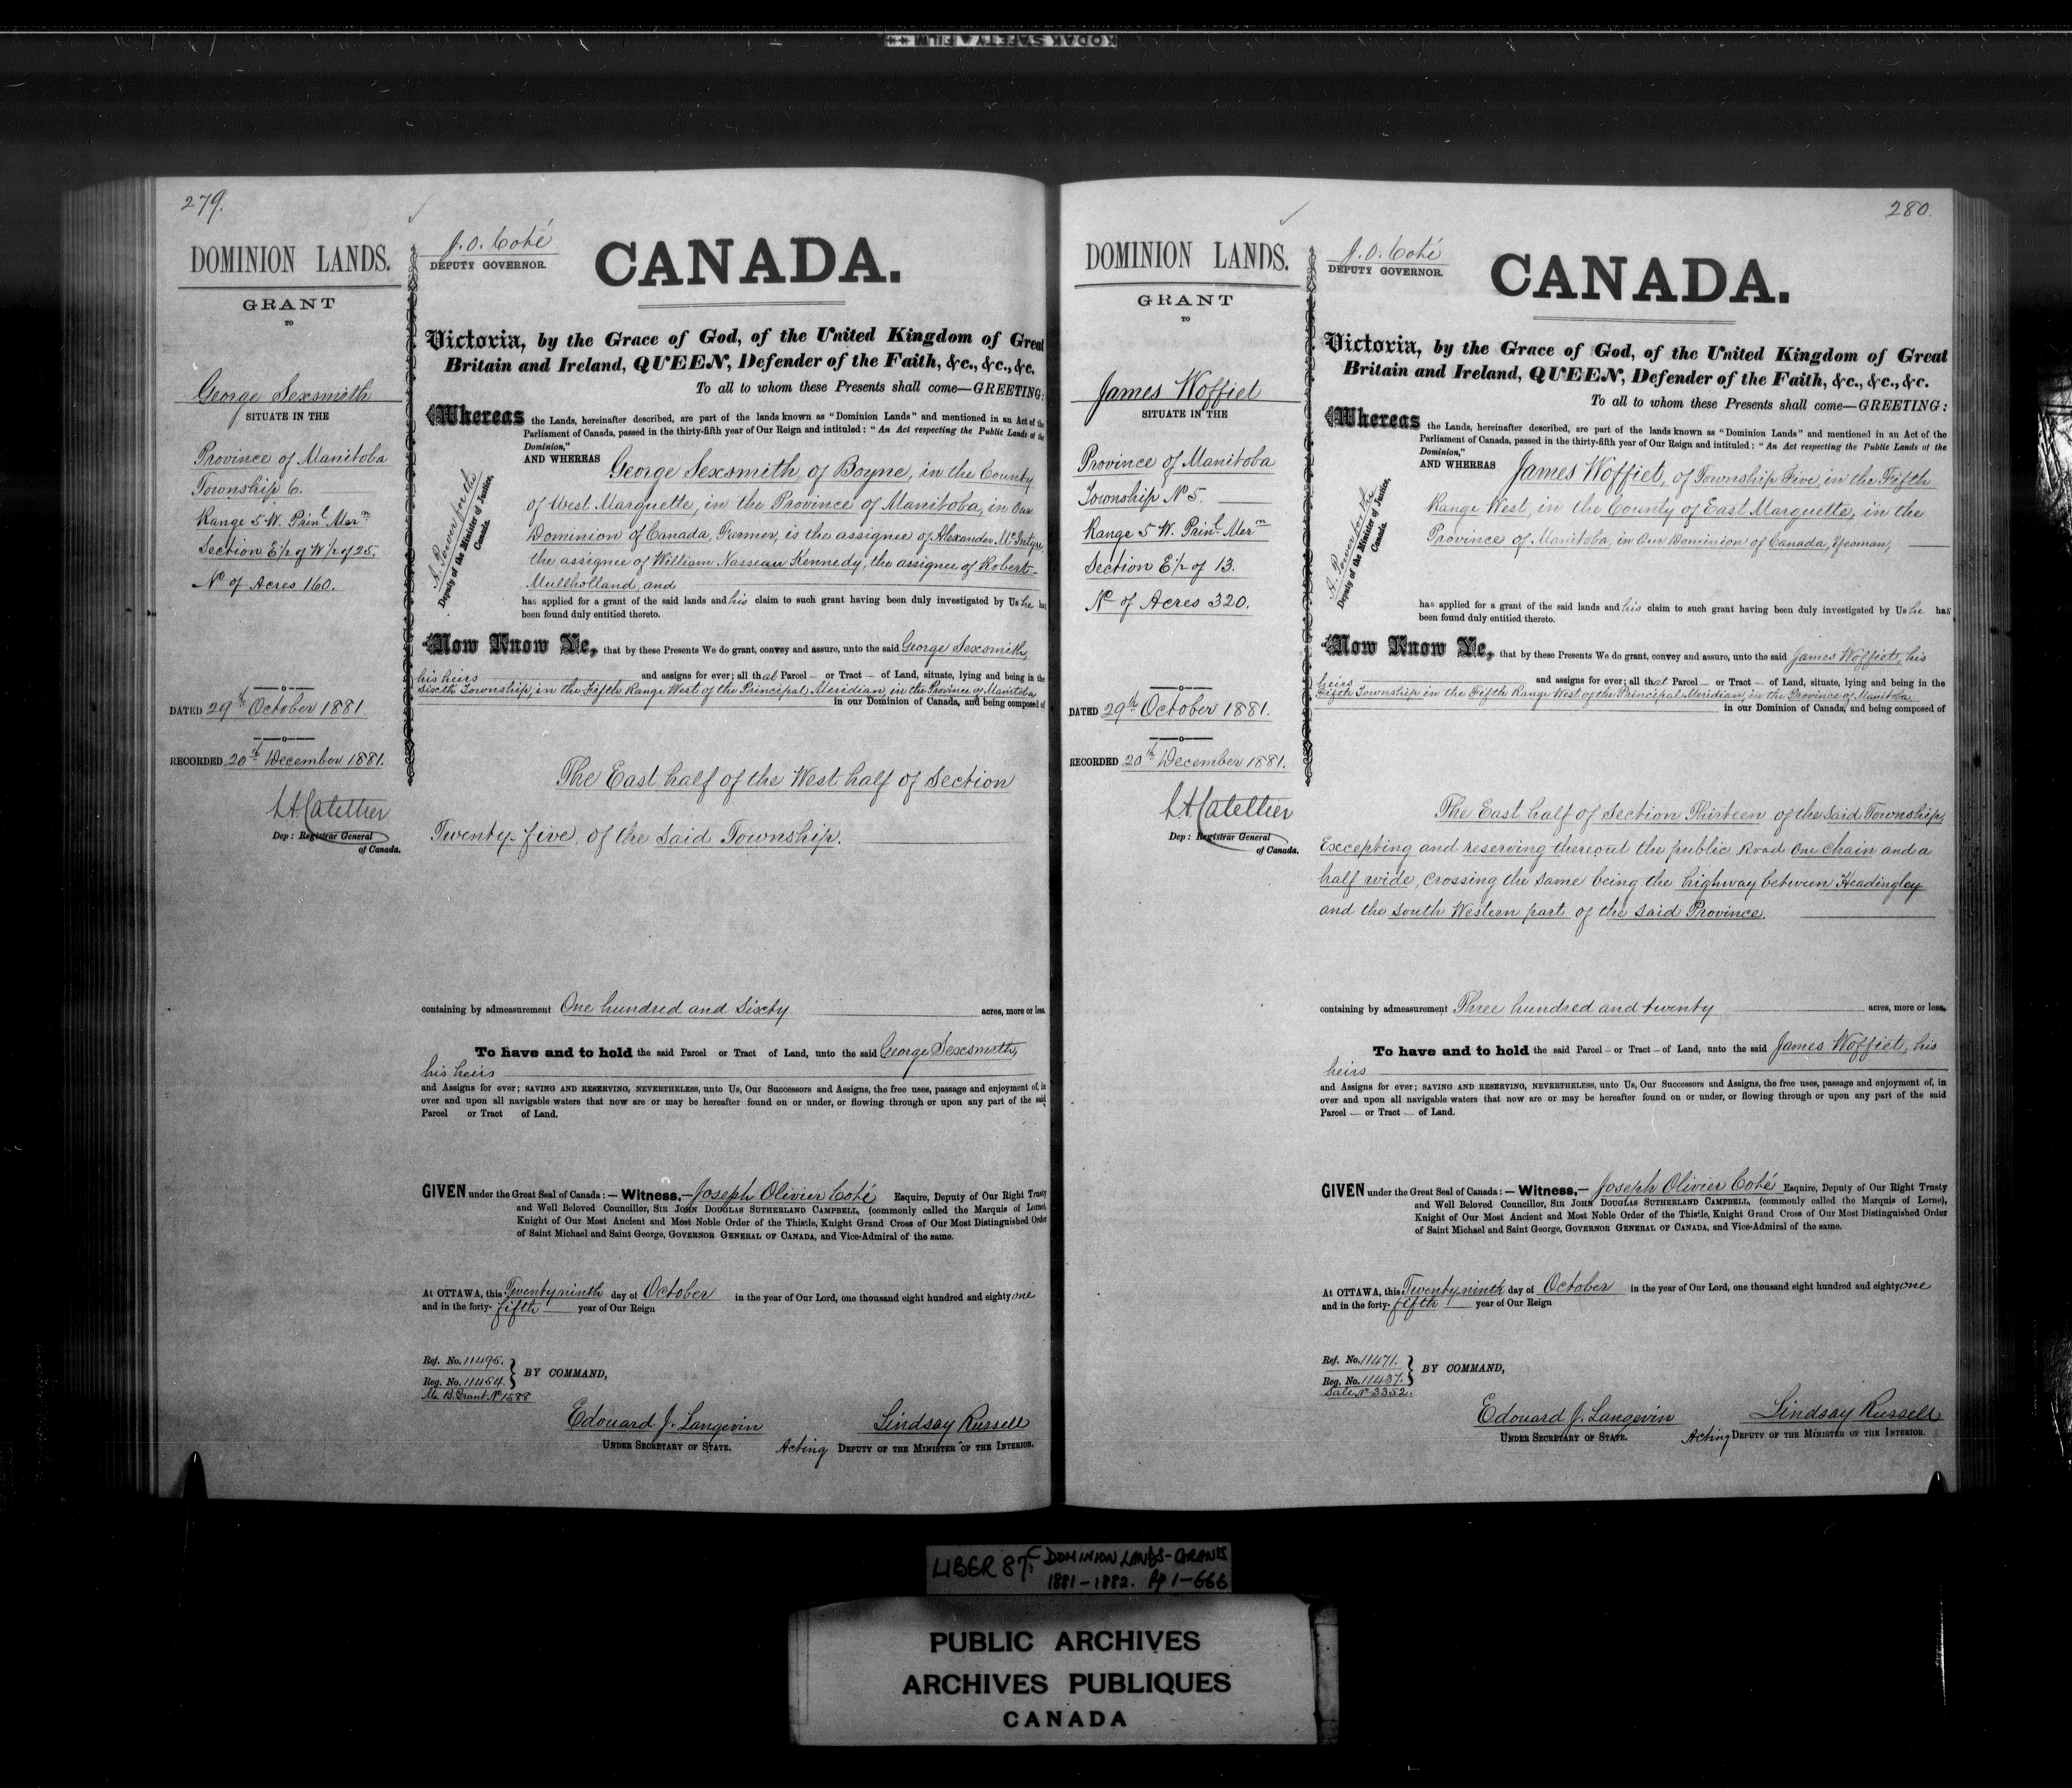 KODAK SAFETY FILM
279.
DOMINION LANDS.
GRANT
TO
George Sexsmith
SITUATE IN THE
Province of Manitoba
Township 6.
Range 5 W. Prinl Merm
Section E 1/2 of W 1/2 of 25.
No of Acres 160.
DATED 29th October 1881.
RECORDED 20th December 1881.
Dep: Registrar General
of Canada.
J. O. Coté
DEPUTY GOVERNOR.
CANADA.
Victoria, by the Grace of God, of the United Kingdom of Great
Britain and Ireland, QUEEN, Defender of the Faith, &c., &c., &c.
To all to whom these Presents shall come—GREETING:
Whereas the Lands, hereinafter described, are part of the lands known as "Dominion Lands" and mentioned in an Act of the
Parliament of Canada, passed in the thirty-fifth year of Our Reign and intituled: "An Act respecting the Public Lands of the
Dominion,"
AND WHEREAS George Sexsmith, of Boyne, in the County
of West Marquette, in the Province of Manitoba, in Our
Dominion of Canada, Farmer, is the assignee of Alexander McIntyre
the assignee of William Nassau Kennedy, the assignee of Robert
Mullholland, and
A. Power for the
Deputy of the Minister of Justice,
Canada.
has applied for a grant of the said lands and his claim to such grant having been duly investigated by Us he has
been found duly entitled thereto.
Now Know Ye, that by these Presents We do grant, convey and assure, unto the said George Sexsmith,
his heirs and assigns for ever; all that Parcel — or Tract — of Land, situate, lying and being in the
Sixth Township, in the Fifth Range West of the Principal Meridian, in the Province of Manitoba
in our Dominion of Canada, and being composed of
The East half of the West half of Section
Twenty-five, of the said Township.
containing by admeasurement One hundred and Sixty acres, more or less.
To have and to hold the said Parcel or Tract of Land, unto the said George Sexsmith,
his heirs
and Assigns for ever; SAVING AND RESERVING, NEVERTHELESS, unto Us, Our Successors and Assigns, the free uses, passage and enjoyment of, in
over and upon all navigable waters that now are or may be hereafter found on or under, or flowing through or upon any part of the said
Parcel or Tract of Land.
GIVEN under the Great Seal of Canada:—Witness,—Joseph Olivier Coté Esquire, Deputy of Our Right Trusty
and Well Beloved Councillor, SIR JOHN DOUGLAS SUTHERLAND CAMPBELL, (commonly called the Marquis of Lorne),
Knight of Our Most Ancient and Most Noble Order of the Thistle, Knight Grand Cross of Our Most Distinguished Order
of Saint Michael and Saint George, GOVERNOR GENERAL OF CANADA, and Vice-Admiral of the same.
At OTTAWA, this Twenty ninth day of October in the year of Our Lord, one thousand eight hundred and eighty one
and in the forty-fifth year of Our Reign
Ref. No. 11495.
Reg. No. 11454.
M. B. Grant No 1588
BY COMMAND,
Edouard J. Langevin
UNDER SECRETARY OF STATE.
Lindsay Russell
Acting DEPUTY OF THE MINISTER OF THE INTERIOR.
280.
DOMINION LANDS.
GRANT
TO
James Woffiet
SITUATE IN THE
Province of Manitoba
Township No 5.
Range 5 W. Prinl Merm
Section E 1/2 of 13.
No of Acres 320.
DATED 29th October 1881.
RECORDED 20th December 1881.
Dep: Registrar General
of Canada.
J. O. Coté
DEPUTY GOVERNOR.
CANADA.
Victoria, by the Grace of God, of the United Kingdom of Great
Britain and Ireland, QUEEN, Defender of the Faith, &c., &c., &c.
To all to whom these Presents shall come—GREETING:
Whereas the Lands, hereinafter described, are part of the lands known as "Dominion Lands" and mentioned in an Act of the
Parliament of Canada, passed in the thirty-fifth year of Our Reign and intituled: "An Act respecting the Public Lands of the
Dominion,"
AND WHEREAS James Woffiet, of Township Five, in the Fifth
Range West, in the County of East Marquette, in the
Province of Manitoba, in Our Dominion of Canada, Yeoman,
A. Power for the
Deputy of the Minister of Justice,
Canada.
has applied for a grant of the said lands and his claim to such grant having been duly investigated by Us he has
been found duly entitled thereto.
Now Know Ye, that by these Presents We do grant, convey and assure, unto the said James Woffiet, his
heirs and assigns for ever; all that Parcel — or Tract — of Land, situate, lying and being in the
Fifth Township in the Fifth Range West of the Principal Meridian, in the Province of Manitoba
in our Dominion of Canada, and being composed of
The East half of Section Thirteen of the said Township,
Excepting and reserving thereout the public Road One chain and a
half wide, crossing the same being the highway between Headingley
and the South Western part of the said Province.
containing by admeasurement Three hundred and twenty acres, more or less.
To have and to hold the said Parcel — or Tract — of Land, unto the said James Woffiet, his
heirs
and Assigns for ever; SAVING AND RESERVING, NEVERTHELESS, unto Us, Our Successors and Assigns, the free uses, passage and enjoyment of, in
over and upon all navigable waters that now are or may be hereafter found on or under, or flowing through or upon any part of the said
Parcel — or Tract — of Land.
GIVEN under the Great Seal of Canada:—Witness,—Joseph Olivier Coté Esquire, Deputy of Our Right Trusty
and Well Beloved Councillor, SIR JOHN DOUGLAS SUTHERLAND CAMPBELL, (commonly called the Marquis of Lorne),
Knight of Our Most Ancient and Most Noble Order of the Thistle, Knight Grand Cross of Our Most Distinguished Order
of Saint Michael and Saint George, GOVERNOR GENERAL OF CANADA, and Vice-Admiral of the same.
At OTTAWA, this Twenty ninth day of October in the year of Our Lord, one thousand eight hundred and eighty one
and in the forty-fifth year of Our Reign
Ref. No. 11471.
Reg. No. 11437.
Sale No 3352.
BY COMMAND,
Edouard J. Langevin
UNDER SECRETARY OF STATE.
Lindsay Russell
Acting DEPUTY OF THE MINISTER OF THE INTERIOR.
LIBER 87C DOMINION LANDS-GRANTS
1881-1882. Pp 1-666
PUBLIC ARCHIVES
ARCHIVES PUBLIQUES
CANADA